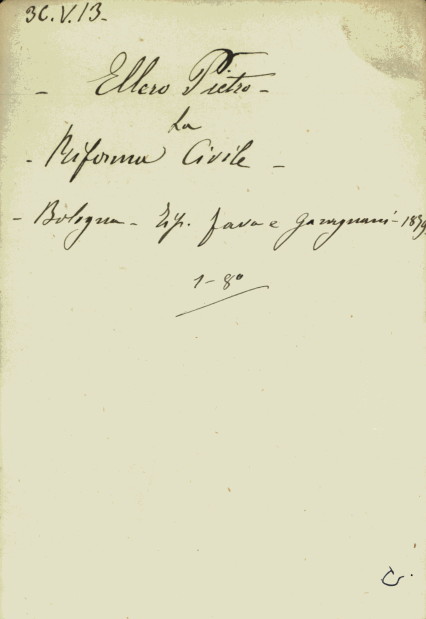 36.V.13-
- Ellero Pietro -
La
- Riforma Civile -
- Bologna - Tip. Fava e Garagnani - 1879
1-8º